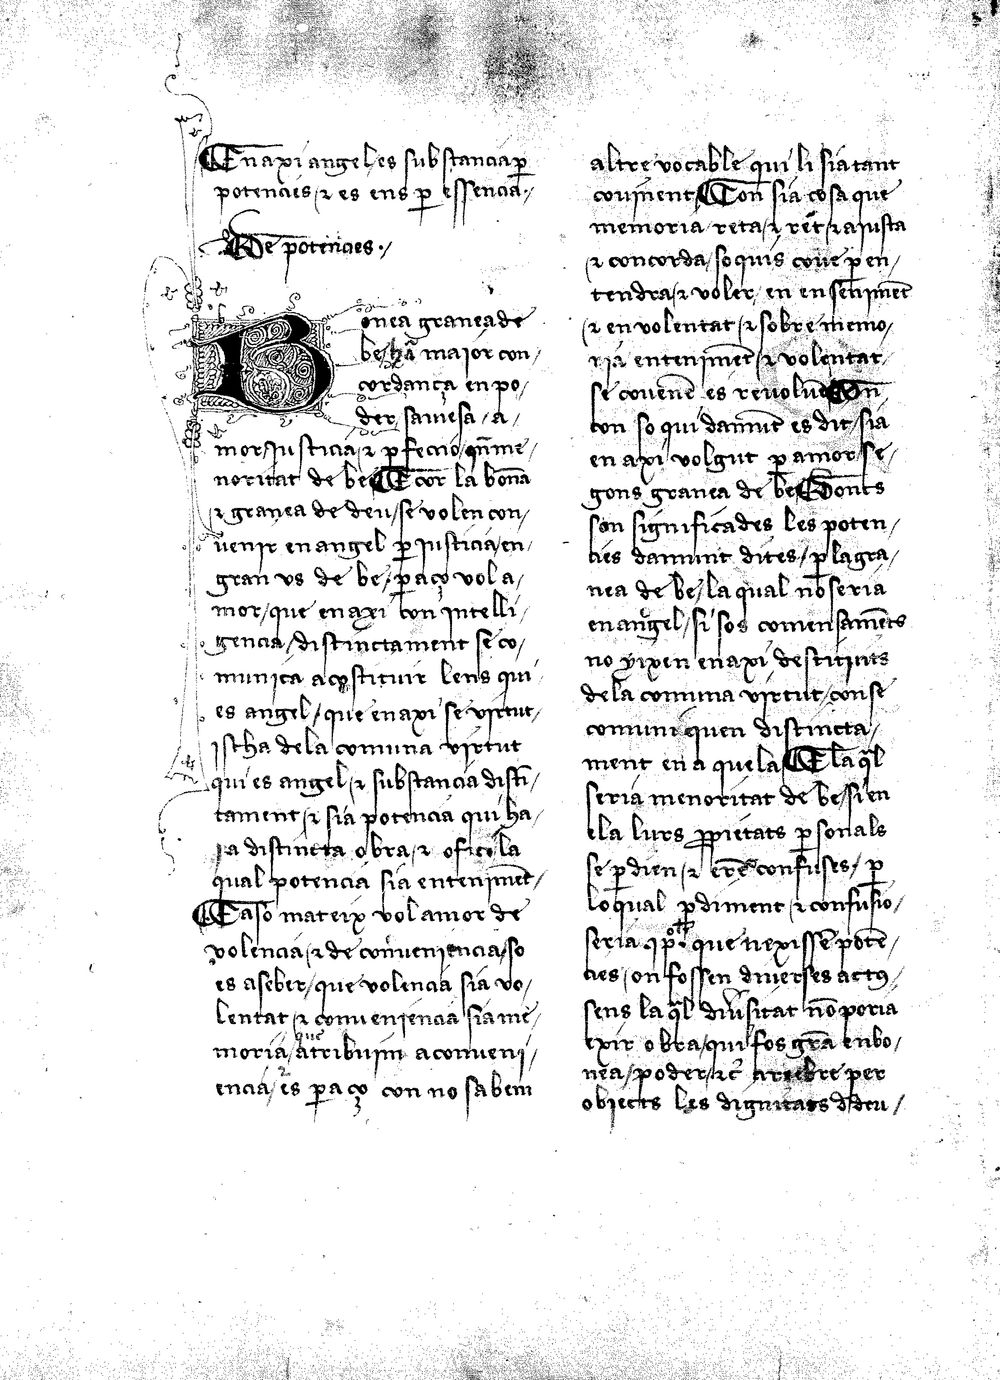 En axi angel es substancia p̱
potencies ⁊ es ens p̱ essencia·/
De potencies·/
Bonea granea de
be ha maior con/
cordança en po/
der sauiesa / a/
mor / justicia / ⁊ p̱feccio / q̄n me/
noritat de be E cor la bonā
⁊ granea de deu / se volen con/
uenir en angel p̱ justicia / en
gran vs de be / p̱ aço vol a/
mor / que en axi con intelli/
gencia / distinctament se co/
munica a cōstituir lens qui
es angel / que en axi se virtut /
istha de la comuna virtut
qui es angel / ⁊ substancia disti̅/
tament / ⁊ sia potencia qui ha/
ia distincta obra / ⁊ ofici la
qual potencia sia entenime̅t /
E aso mateix vol amor de
volencia / ⁊ de conueniencia / so
es a seber / que volencia sia vo/
lentat ⁊ conueniencia sia me/
moria / que atribuim a conueni/
encia / es p̱ aço con no sabem
altre vocable qui li sia tant
couinent Con sia cosa que
memoria reta / ⁊ ret / ⁊ ajusta
⁊ concorda / so quis coue p̱ en/
tendra / ⁊ voler / en enseniment
⁊ en volentat / ⁊ sobre memo/
ria entenime̅t / ⁊ volentat
se couene̅ es reuolue On
con so qui damu̅t es dit / sia
en axi volgut p̱ amor / se/
gons granea de be Doncs
son significades les poten/
cies damunt dites / p̱ la gra/
nea de be / la qual no̅ seria
en angel / si sos comensame̅ts
no yixen en axi destituits
de la comuna virtut / con se
comuniquen distincta/
ment en aquela E la q̄l
seria menoritat de be / si en
ela lurs ꝓpietats p̱sonals
se p̱dien / ⁊ ere̅ confuses / p̱
lo qual p̱diment ⁊ confusio /
seria que nexisse̅ pote̅/
cies / on fossen diuerses actꝯ
sens la q̄l diu̅sitat no̅ poria
exir obra / qui fos gra̅ en bo/
nea / poder / ⁊c̅ per
obiects les dignitats d deu /